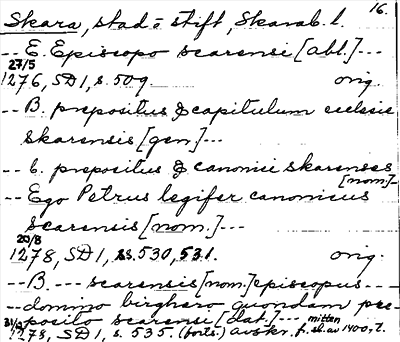 16.
Skara, stad o stift, Skarab. l.
-- E. Episcopo scarensi [abl.]---
27/5
1276, SD1, s. 509. orig.
-- B. prepositus & capitulum ecclesie
skarensis [gen]---
-- b. prepositus & canonici skarenses
[nom]--
-- Ego Petrus legifer canonicus
scarensis [nom.]---
20/8
1278, SD1, ss. 530, 531. orig.
--B. --- scarensis [nom.] episcopus ---
--domino birghero quondam pre-
posito scarensi [dat.]--- mitten
1278, SD1, s. 535. (forts.) avskr. fr. sl. av 1400-t.